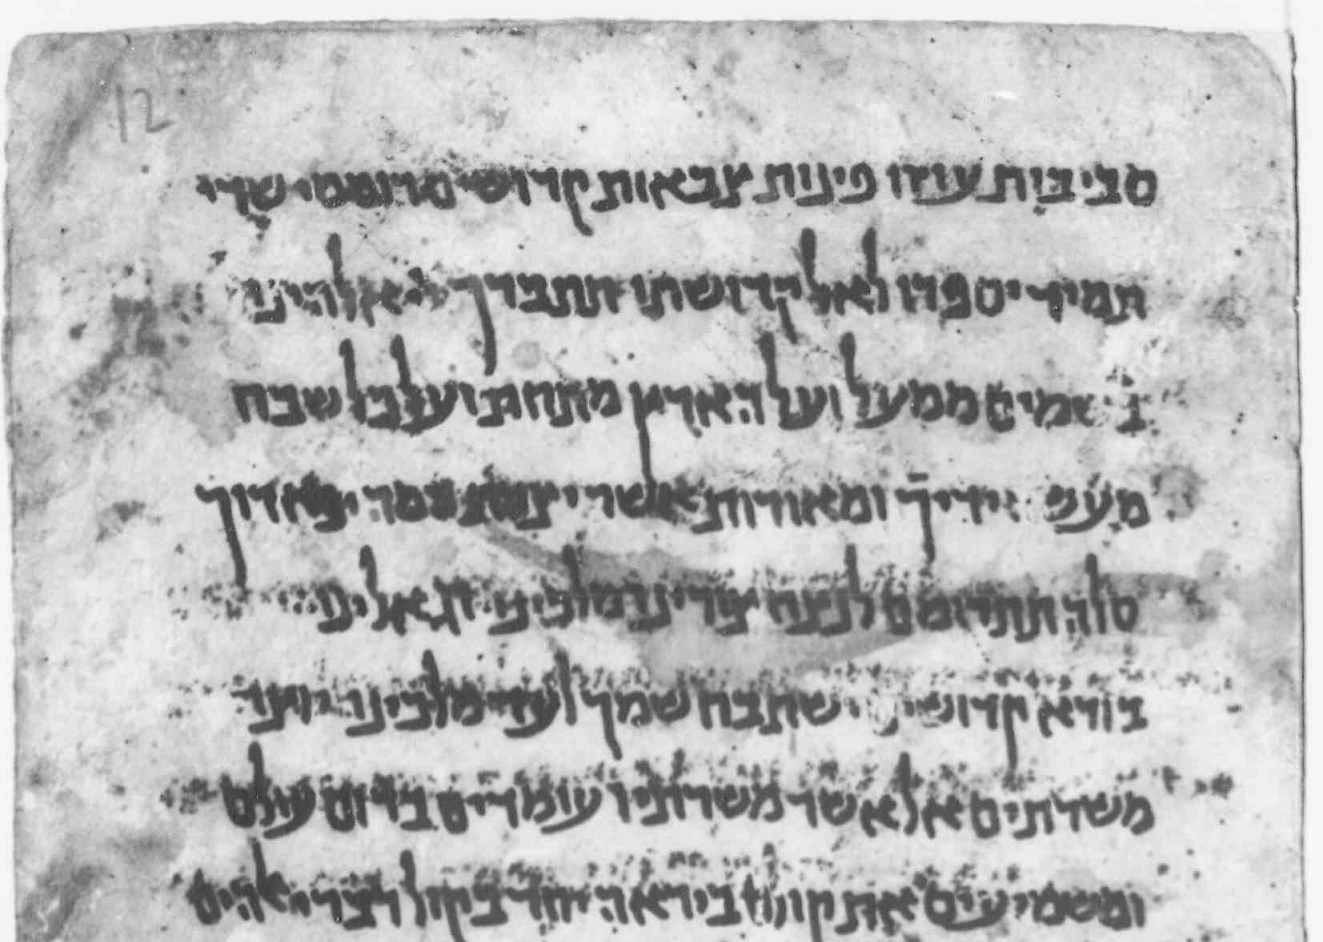 12
סביבות עוזו פינות צבאות קדושים רוממי שדי
תמיד יספרו לאל קדושתו תתברך אלהינו
בשמים ממעל ועל הארץ מתחת ועל כל שבח
מעשי ידיך ומאורות אשר יצרת המה יפארוך
סלה תתרומם לנצח צורינו מלכינו וגאלינו
בורא קדושים ישתבח שמך לעד מלכינו יוצר
משרתים אל אשר משרתיו עומדים ברום עולם
ומשמיעים את קולם ביראה יחד בקול דברי אלהים